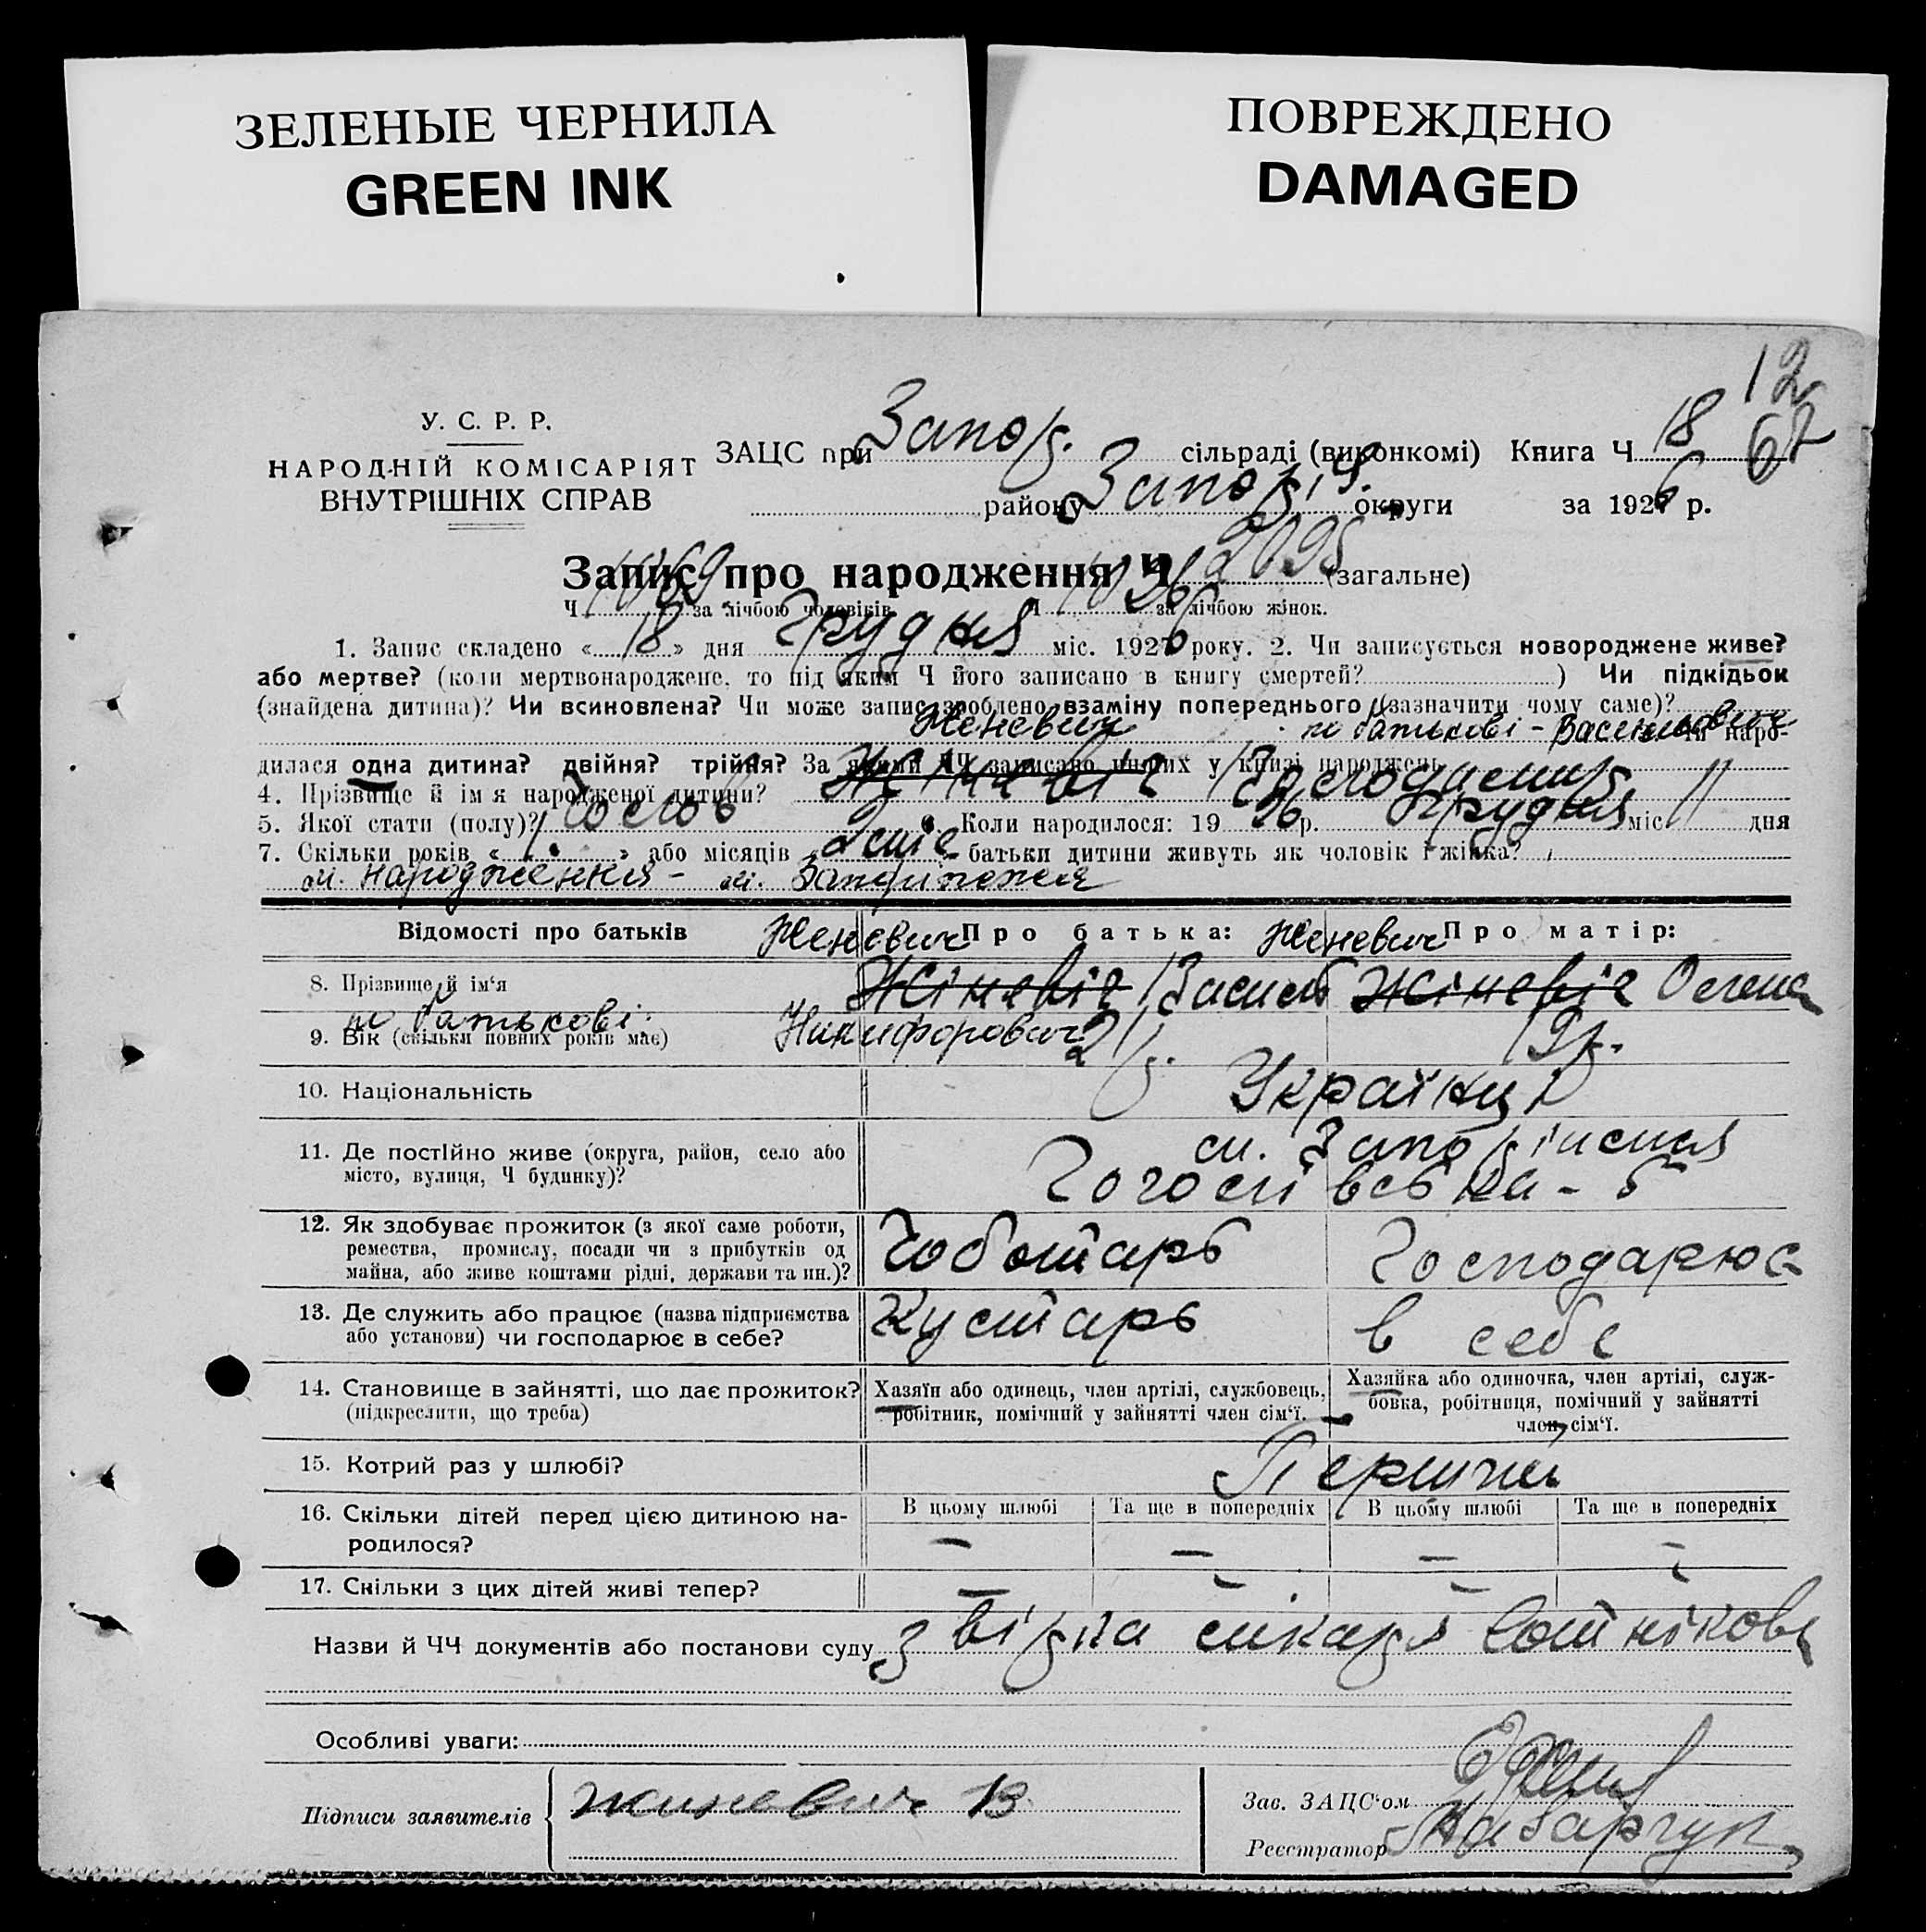 ЗЕЛЕНЫЕ ЧЕРНИЛА
GREEN INK
ПОВРЕЖДЕНО
DAMAGED
12
67
У. С. Р. Р.
НАРОДНІЙ КОМІСАРІЯТ
ВНУТРІШНІХ СПРАВ
ЗАЦС при Запор. сільраді (виконкомі) Книга Ч 18
району Запоріч. округи за 1926 р.
Запис про народження Ч 2095 (загальне)
Ч 1069 за лічбою чоловіків Ч 1026 за лічбою жінок.
1. Запис складено « 18 » дня Грудня міс. 1926 року. 2. Чи записується новороджене живе?
або мертве? (коли мертвонароджене, то під яким Ч його записано в книгу смертей? ) Чи підкідьок
(знайдена дитина)? Чи всиновлена? Чи може запис зроблено взаміну попереднього (зазначити чому саме)?
Женевич по батькові - Васильович Чи наро-
дилася одна дитина? двійня? трійня? За якими ЧЧ записано инших у книзі народжень
4. Прізвище й ім я народженої дитини? Жіневіч
5. Якої стати (полу)? Чолов 6. Коли народилося: 19 26 р. Грудня міс 11 дня
7. Скільки років « 1 » або місяців « батьки дитини живуть як чоловік і жінка?
м. народження - м. Запоріжжя
Відомості про батьків Женевич Про батька: Женевич Про матір:
8. Прізвище й ім‘я Жіневіч Василь Жіневіч Олена
по батькові: Никифорович
9. Вік (скільки повних років має) 21 р. 19 р.
10. Національність Українці
11. Де постійно живе (округа, район, село або
місто, вулиця, Ч будинку)? м. Запоріжжя
Гоголівська - 5
12. Як здобуває прожиток (з якої саме роботи,
ремества, промислу, посади чи з прибутків од
майна, або живе коштами рідні, держави та ин.)? Чоботарь Господарює
13. Де служить або працює (назва підприємства
або установи) чи господарює в себе? Кустарь в себе
14. Становище в зайнятті, що дає прожиток?
(підкреслити, що треба)
Хазяїн або одинець, член артілі, службовець,
робітник, помічний у зайнятті член сім‘ї.
Хазяйка або одиночка, член артілі, служ-
бовка, робітниця, помічний у зайнятті
член сім‘ї.
15. Котрий раз у шлюбі? Перший
16. Скільки дітей перед цією дитиною на-
родилося?
В цьому шлюбі Та ще в попередніх В цьому шлюбі Та ще в попередніх
– – – –
17. Скільки з цих дітей живі тепер? – – – –
Назви й ЧЧ документів або постанови суду лікаря
Особливі уваги:
Підписи заявителів Жиневич В
Зав. ЗАЦС‘ом
Реєстратор